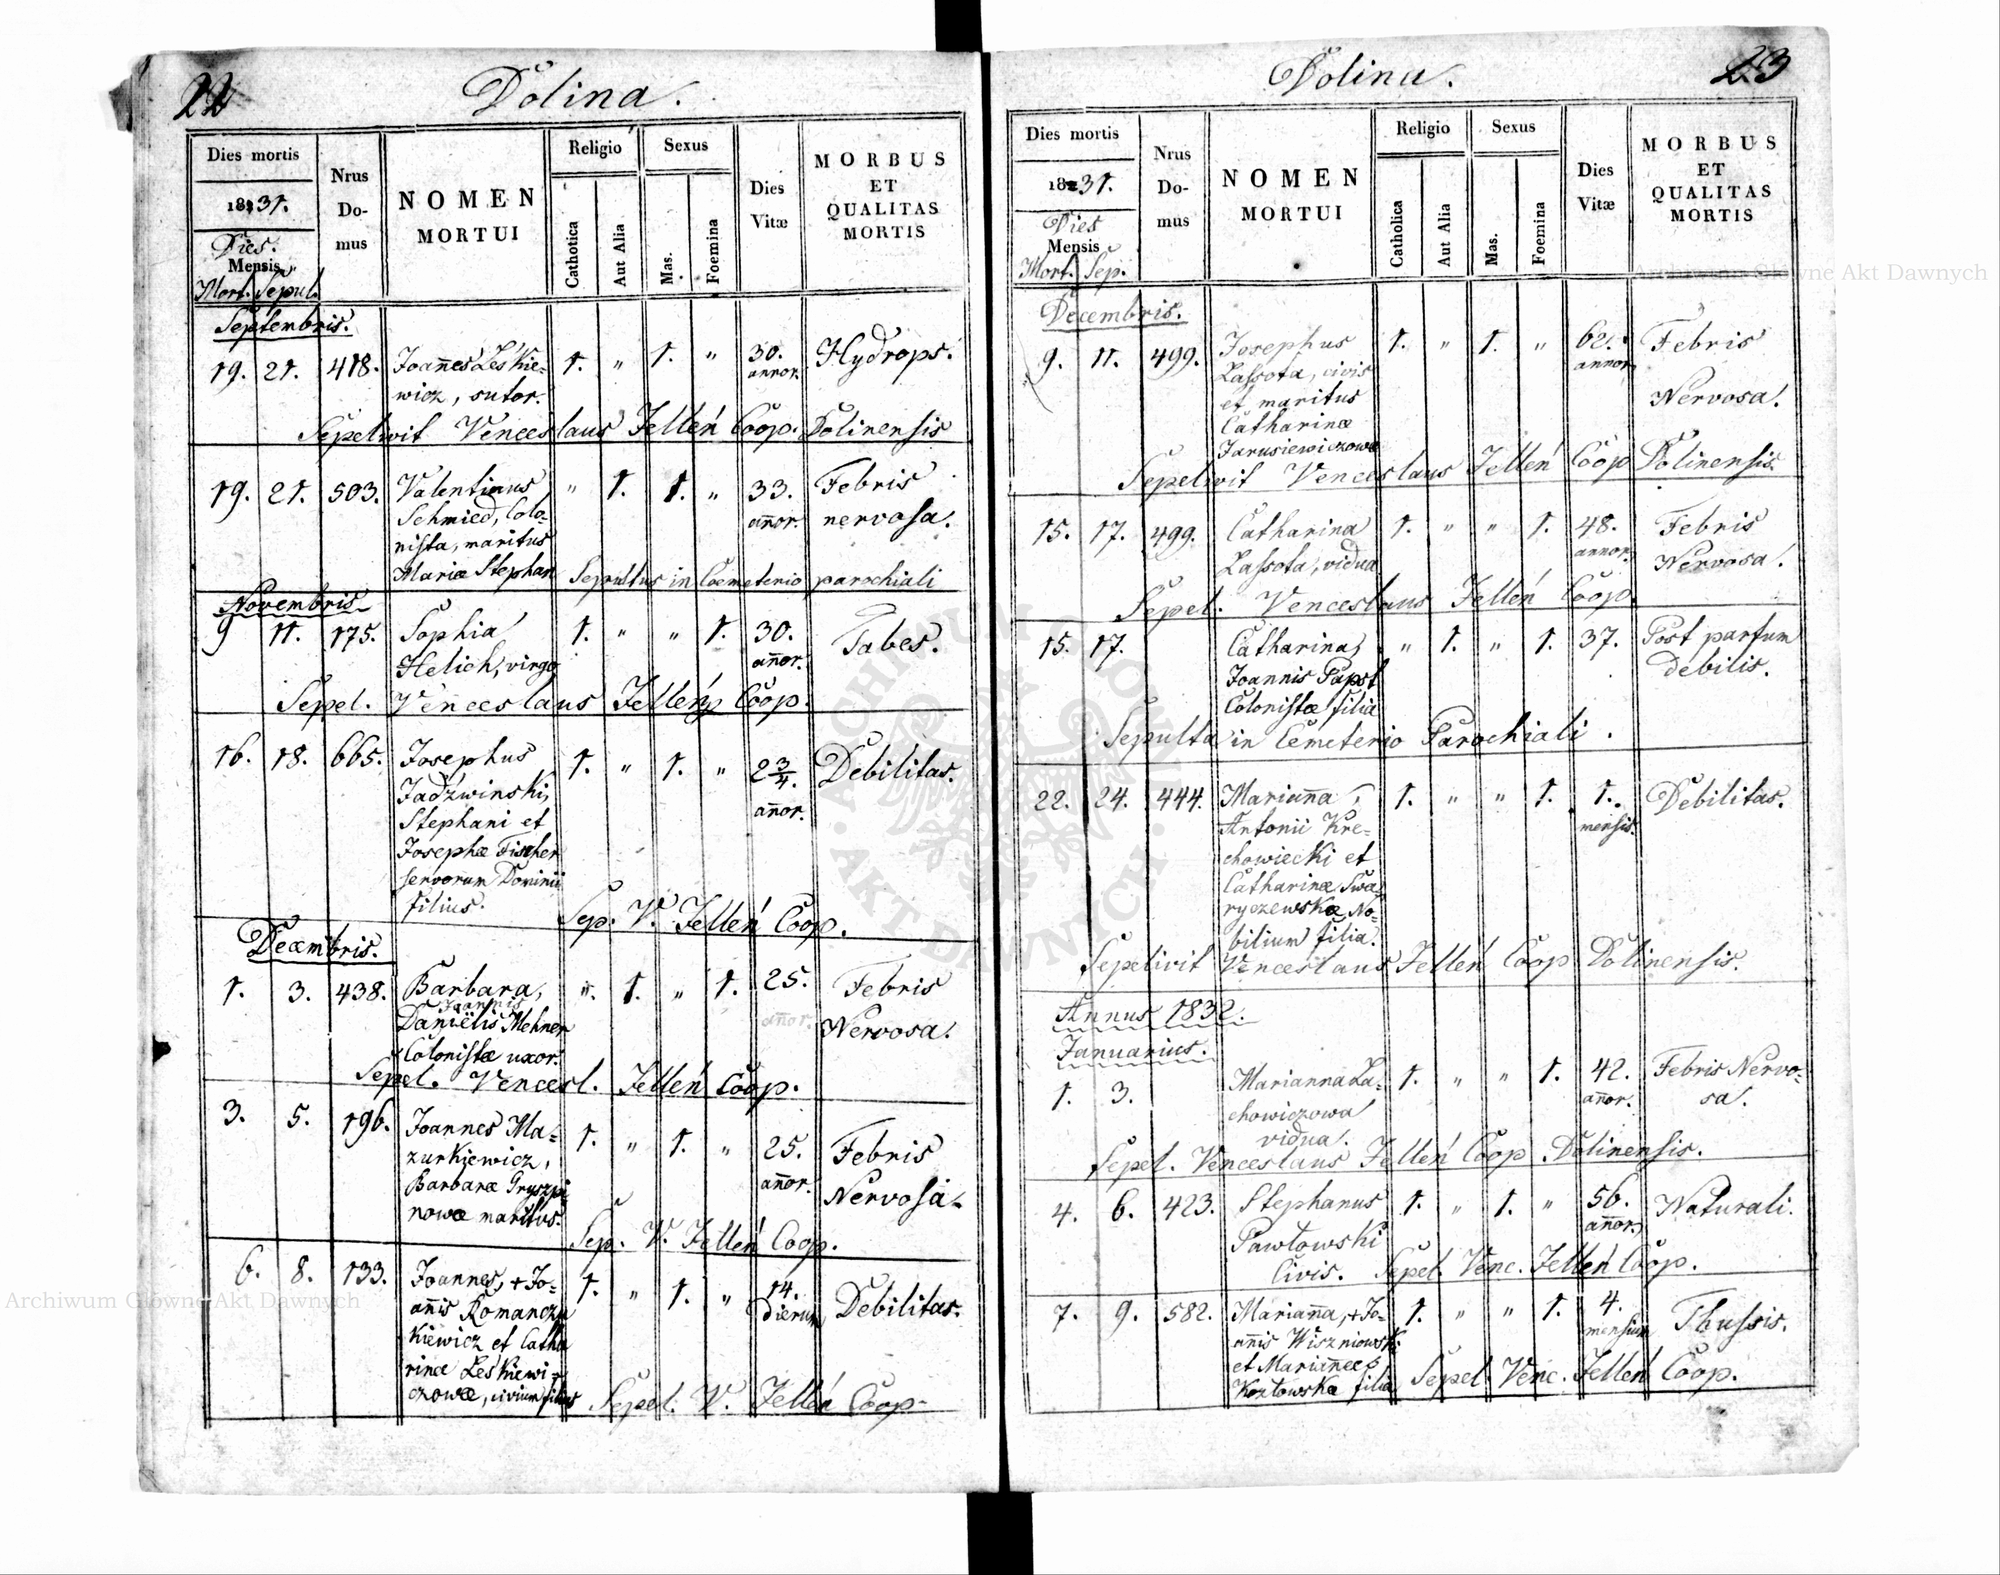 22
Dolina.
Dies mortis
1831.
Dies.
Mensis
Mort. Sepul.
Nrus
Do-
mus
NOMEN
MORTUI
Religio
Catholica
Aut Alia
Sexus
Mas.
Foemina
Dies
Vitæ
MORBUS
ET
QUALITAS
MORTIS
Septembris.
19. 21. 418. Joañes Leśkie= 1. " 1. " 30. Hydrops.
annor.
wicz, sutor.
Sepelivit Venceslaus Jelleń Coop. Dolinensis
19. 21. 503. Valentinus, " 1. 1. " 33. Febris
Schmied, Colo= añor. nervosa.
nista, maritus
Mariæ Stephan Sepultus in Coemeterio parochiali
Novembris
9 11. 175. Sophia 1. " " 1. 30. Tabes.
Helich, virgo añor.
Sepel. Venceslaus Jelleń Coop.
16. 18. 665. Josephus 1. " 1. " 2 3/4. Debilitas.
Jadźwinski, añor.
Stephani et
Josephæ Fischer
servorum Dominii
filius.
Sep. V. Jelleń Coop.
Decembris.
1. 3. 438. Barbara, ". 1. " 1. 25. Febris
Joannis añor.
Daniëlis Mehner Nervosa.
Colonistæ uxor.
Sepel. Vencesl. Jelleń Coop.
3. 5. 196. Joannes Ma= 1. " 1. " 25. Febris
zurkiewicz, añor.
Barbaræ Gryszpi Nervosa.
nowæ maritus.
Sep. V. Jelleń Coop.
6. 8. 133. Joannes, + Jo= 1. " 1. " 14. Debilitas.
añis Romanczu dierum
kiewicz et Catha
rinæ Leśkiewi=
czowæ, civium filius
Sepel. V. Jelleń Coop.
23
Dolina.
Dies mortis
1831.
Dies
Mensis
Mort. Sep.
Nrus
Do-
mus
NOMEN
MORTUI
Religio
Catholica
Aut Alia
Sexus
Mas.
Foemina
Dies
Vitæ
MORBUS
ET
QUALITAS
MORTIS
Decembris.
9. 11. 499. Josephus 1. " 1. " 62. Febris
Lassota, civis annor.
et maritus Nervosa.
Catharinæ
Jarusiewiczowæ
Sepelivit Venceslaus Jelleń Coop Dolinensis.
15. 17. 499. Catharina 1. " " 1. 48. Febris
annor.
Lassota, vidua Nervosa.
Sepel. Venceslaus Jelleń Coop.
15. 17. Catharina, " 1. " 1. 37. Post partum
Joannis Papst debilis.
Colonistæ filia
Sepulta in Cemeterio Parochiali.
22. 24. 444. Mariañna, 1. " " 1. 1. Debilitas.
Antonii Kre= mensis.
chowiecki et
Catharinæ Swa
ryczewskæ No=
bilium filia.
Sepelivit Venceslaus Jelleń Coop Dolinensis.
Annus 1832.
Januarius.
1. 3. Marianna La= 1. " " 1. 42. Febris Nervo=
chowiczowa añor. sa.
vidua.
Sepel. Venceslaus Jelleń Coop Dolinensis.
4. 6. 423. Stephanus 1. " 1. " 56. Naturali.
añor.
Pawłowski
Civis. Sepel. Venc. Jelleń Coop.
7. 9. 582. Mariañna, + Jo= 1. " " 1. 4. Thussis.
añis Wiszniowski mensium
et Mariañeæ
Kozłowskæ filia Sepel. Venc. Jelleń Coop.
Archiwum Główne Akt Dawnych
Archiwum Główne Akt Dawnych
ARCHIWUM GŁÓWNE · AKT DAWNYCH ·